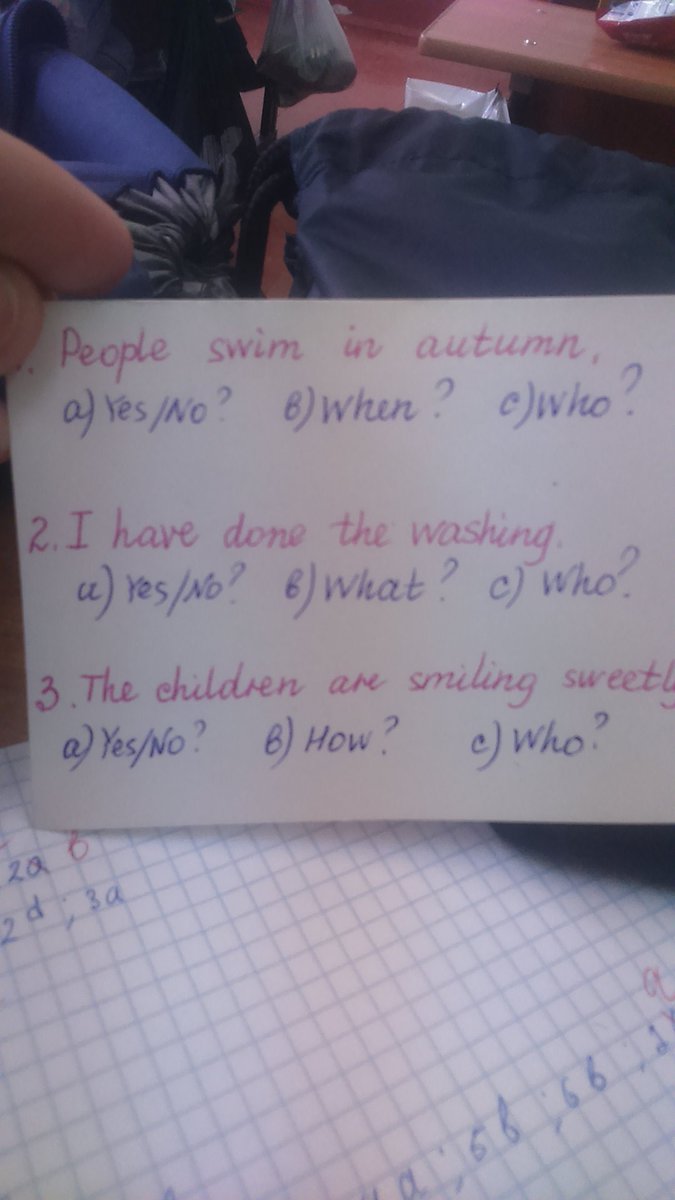 . People swim in autumn.
a) Yes/No? b) When? c) Who?
2. I have done the washing.
a) Yes/No? b) What? c) Who?
3. The children are smiling sweetly
a) Yes/No? b) How? c) Who?
2a b
2d; 3a
a
a; 5b; 6b;